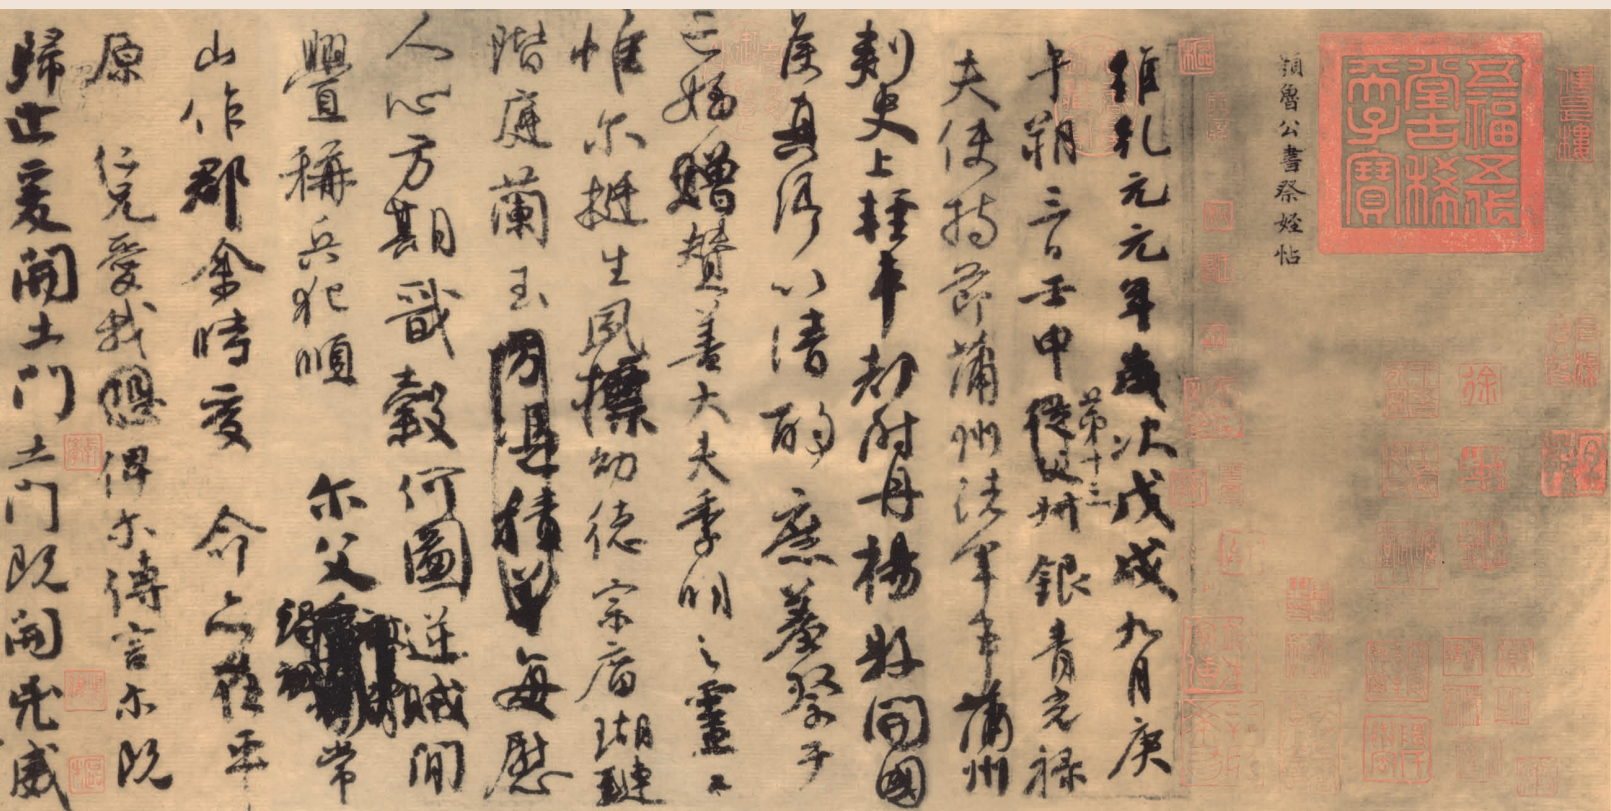 傳是樓
五福五代堂古稀天子寶
顏魯公書祭姪帖
維乾元元年歲次戊戌九月庚
午朔三日壬申第十三從父叔銀青光祿
夫使持節蒲州諸軍事蒲州
刺史上輕車都尉丹楊縣開國
侯真卿以清酌庶羞祭于
亡姪贈贊善大夫季明之靈曰
惟尔挺生夙標幼德宗廟瑚璉
階庭蘭玉方憑積善每慰
人心方期戩穀何圖逆賊閒
釁稱兵犯順尔父竭誠常
山作郡余時受命亦在平
原仁兄愛我恐俾尔傳言尔既
歸止爰開土門土門既開兇威